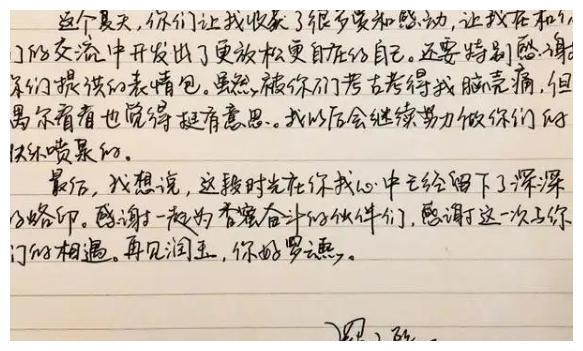 这个夏天，你们让我收获了很多爱和感动，让我在和你
们的交流中开发出了更放松更自在的自己。还要特别感谢
你们提供的表情包。虽然被你们考古考得我脑壳痛，但
偶尔看看也觉得挺有意思。我以后会继续努力做你们的
快乐喷泉的。
最后，我想说，这段时光在你我心中已经留下了深深
的烙印。感谢一起为香蜜奋斗的伙伴们，感谢这一次与你
们的相遇。再见润玉，你好罗云熙。